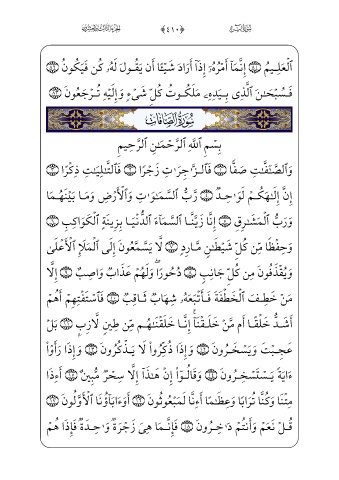 ٱلْعَلِيمُ ۝٨١ إِنَّمَآ أَمْرُهُۥٓ إِذَآ أَرَادَ شَيْـًٔا أَن يَقُولَ لَهُۥ كُن فَيَكُونُ ۝٨٢
فَسُبْحَٰنَ ٱلَّذِى بِيَدِهِۦ مَلَكُوتُ كُلِّ شَىْءٍ وَإِلَيْهِ تُرْجَعُونَ ۝٨٣
سُورَةُ الصَّافَّاتِ
بِسْمِ ٱللَّهِ ٱلرَّحْمَٰنِ ٱلرَّحِيمِ
وَٱلصَّٰٓفَّٰتِ صَفًّا ۝١ فَٱلزَّٰجِرَٰتِ زَجْرًا ۝٢ فَٱلتَّٰلِيَٰتِ ذِكْرًا ۝٣
إِنَّ إِلَٰهَكُمْ لَوَٰحِدٌ ۝٤ رَّبُّ ٱلسَّمَٰوَٰتِ وَٱلْأَرْضِ وَمَا بَيْنَهُمَا
وَرَبُّ ٱلْمَشَٰرِقِ ۝٥ إِنَّا زَيَّنَّا ٱلسَّمَآءَ ٱلدُّنْيَا بِزِينَةِ ٱلْكَوَاكِبِ ۝٦
وَحِفْظًا مِّن كُلِّ شَيْطَٰنٍ مَّارِدٍ ۝٧ لَّا يَسَّمَّعُونَ إِلَى ٱلْمَلَإِ ٱلْأَعْلَىٰ
وَيُقْذَفُونَ مِن كُلِّ جَانِبٍ ۝٨ دُحُورًا ۖ وَلَهُمْ عَذَابٌ وَاصِبٌ ۝٩ إِلَّا
مَنْ خَطِفَ ٱلْخَطْفَةَ فَأَتْبَعَهُۥ شِهَابٌ ثَاقِبٌ ۝١٠ فَٱسْتَفْتِهِمْ أَهُمْ
أَشَدُّ خَلْقًا أَم مَّنْ خَلَقْنَآ ۚ إِنَّا خَلَقْنَٰهُم مِّن طِينٍ لَّازِبٍۭ ۝١١ بَلْ
عَجِبْتَ وَيَسْخَرُونَ ۝١٢ وَإِذَا ذُكِّرُوا۟ لَا يَذْكُرُونَ ۝١٣ وَإِذَا رَأَوْا۟
ءَايَةً يَسْتَسْخِرُونَ ۝١٤ وَقَالُوٓا۟ إِنْ هَٰذَآ إِلَّا سِحْرٌ مُّبِينٌ ۝١٥ أَءِذَا
مِتْنَا وَكُنَّا تُرَابًا وَعِظَٰمًا أَءِنَّا لَمَبْعُوثُونَ ۝١٦ أَوَءَابَآؤُنَا ٱلْأَوَّلُونَ ۝١٧
قُلْ نَعَمْ وَأَنتُمْ دَٰخِرُونَ ۝١٨ فَإِنَّمَا هِىَ زَجْرَةٌ وَٰحِدَةٌ فَإِذَا هُمْ